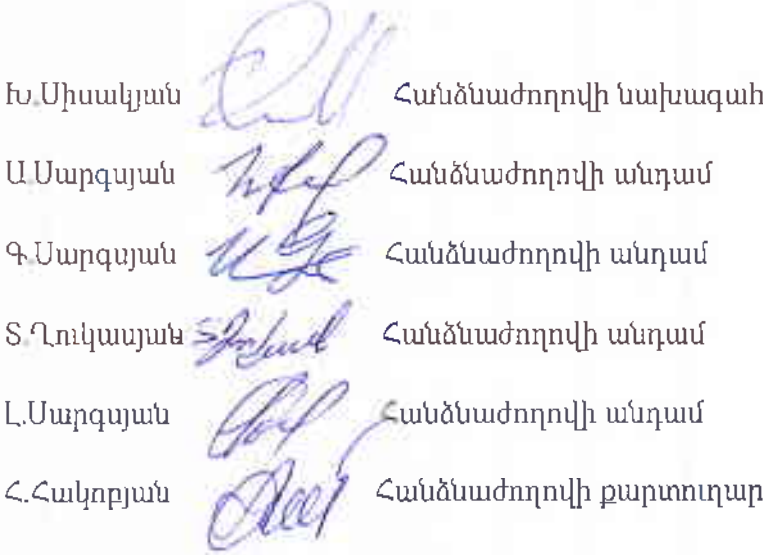 Խ.Սիսակյան Հանձնաժողովի նախագահ
Ա.Սարգսյան Հանձնաժողովի անդամ
Գ.Սարգսյան Հանձնաժողովի անդամ
Տ.Ղուկասյան Հանձնաժողովի անդամ
Լ.Սարգսյան Հանձնաժողովի անդամ
Հ.Հակոբյան Հանձնաժողովի քարտուղար